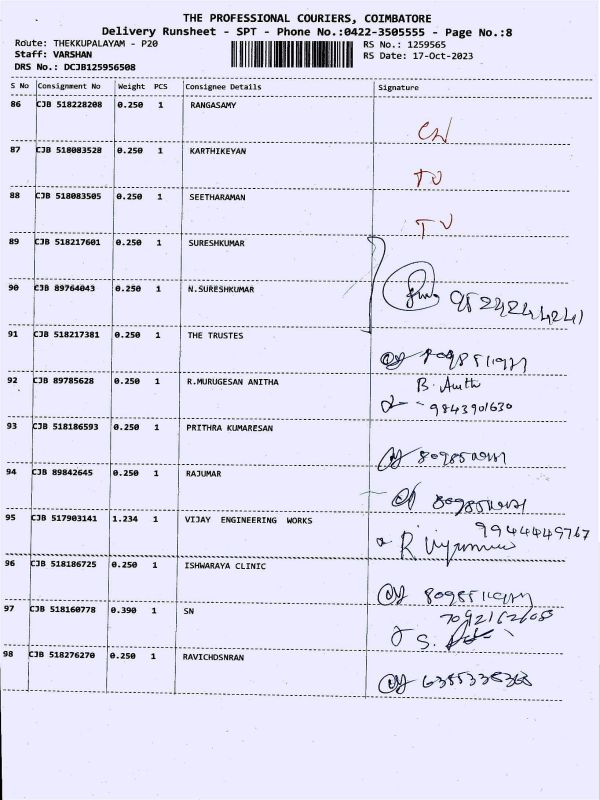 THE PROFESSIONAL COURIERS, COIMBATORE
Delivery Runsheet - SPT - Phone No.:0422-3505555 - Page No.:8
Route: THEKKUPALAYAM - P20
RS No.: 1259565
Staff: VARSHAN
RS Date: 17-Oct-2023
DRS No.: DCJB125956508
S No Consignment No Weight PCS Consignee Details Signature
86 CJB 518228208 0.250 1 RANGASAMY
87 CJB 518083528 0.250 1 KARTHIKEYAN
TU
88 CJB 518083505 0.250 1 SEETHARAMAN
89 CJB 518217601 0.250 1 SURESHKUMAR
90 CJB 89764043 0.250 1 N.SURESHKUMAR
91 CJB 518217381 0.250 1 THE TRUSTES
92 CJB 89785628 0.250 1 R.MURUGESAN ANITHA
9843901630
93 CJB 518186593 0.250 1 PRITHRA KUMARESAN
94 CJB 89842645 0.250 1 RAJUMAR
95 CJB 517903141 1.234 1 VIJAY ENGINEERING WORKS
9944449767
96 CJB 518186725 0.250 1 ISHWARAYA CLINIC
97 CJB 518160778 0.390 1 SN
98 CJB 518276270 0.250 1 RAVICHDSNRAN